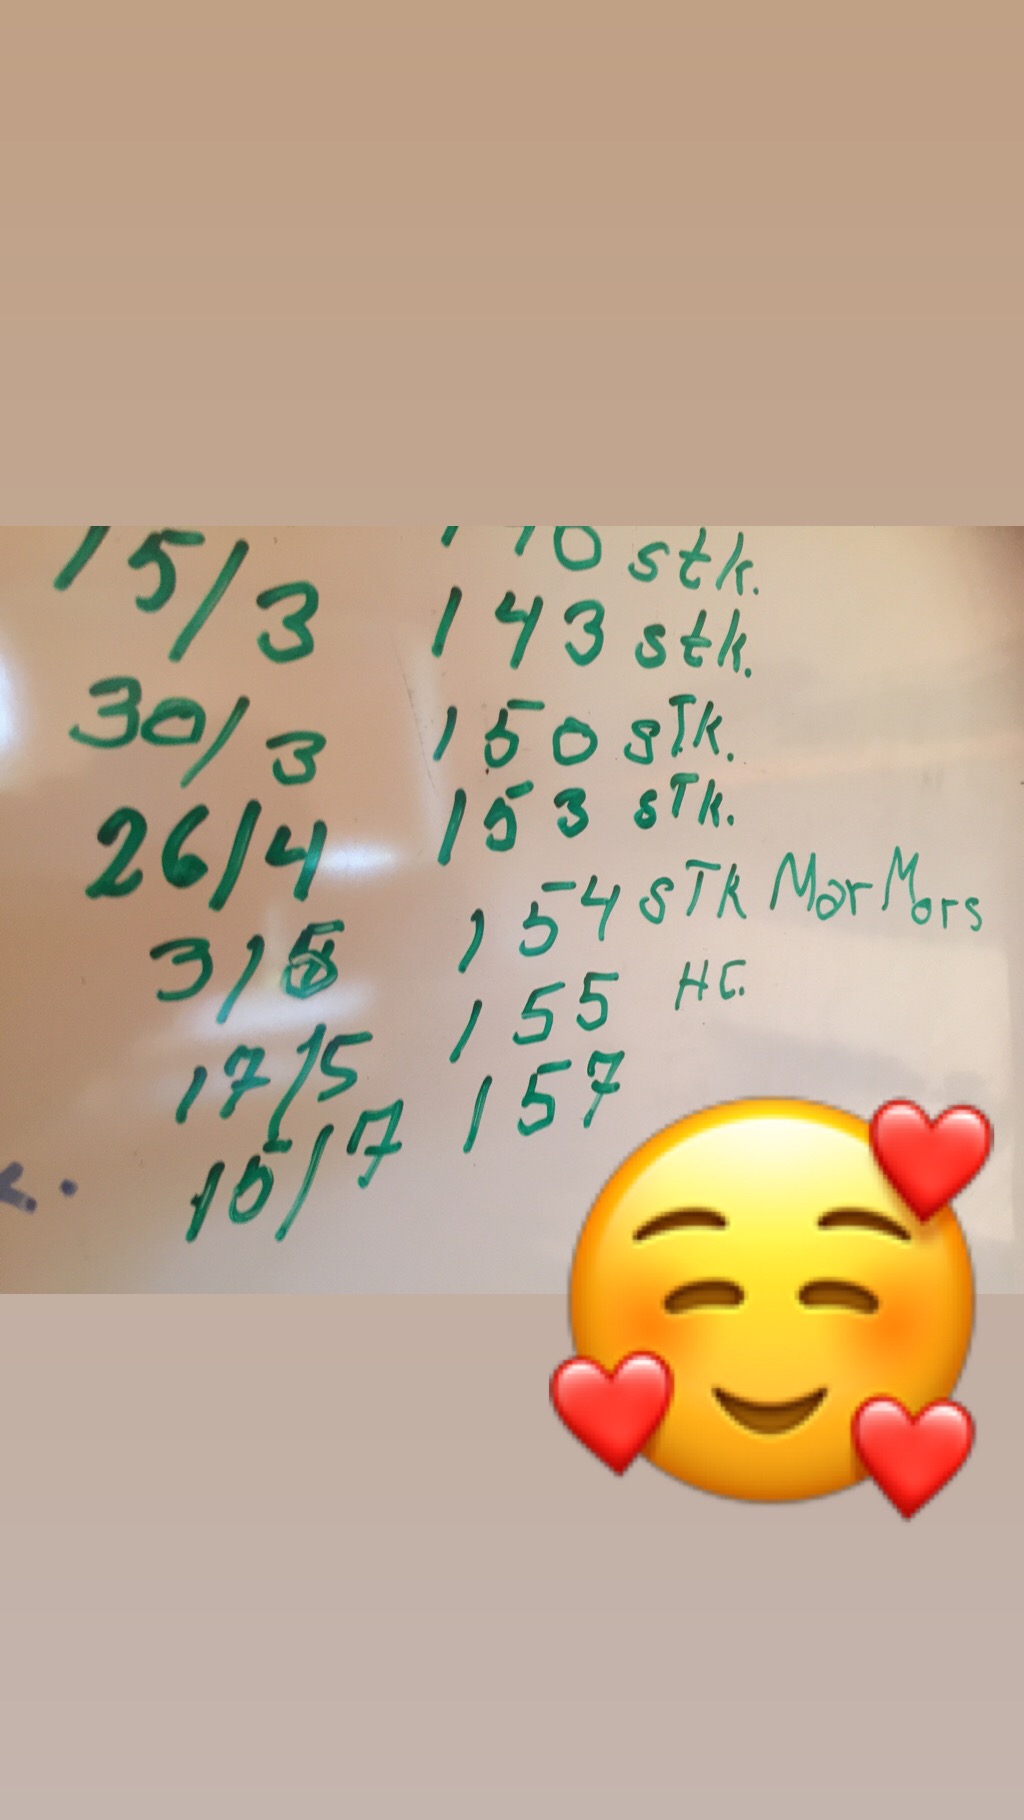 15/3 stk.
143 stk.
30/3 150 sTk.
26/4 153 sTk.
3/5 154 sTk MarMors
17/5 155 HC.
15/7 157